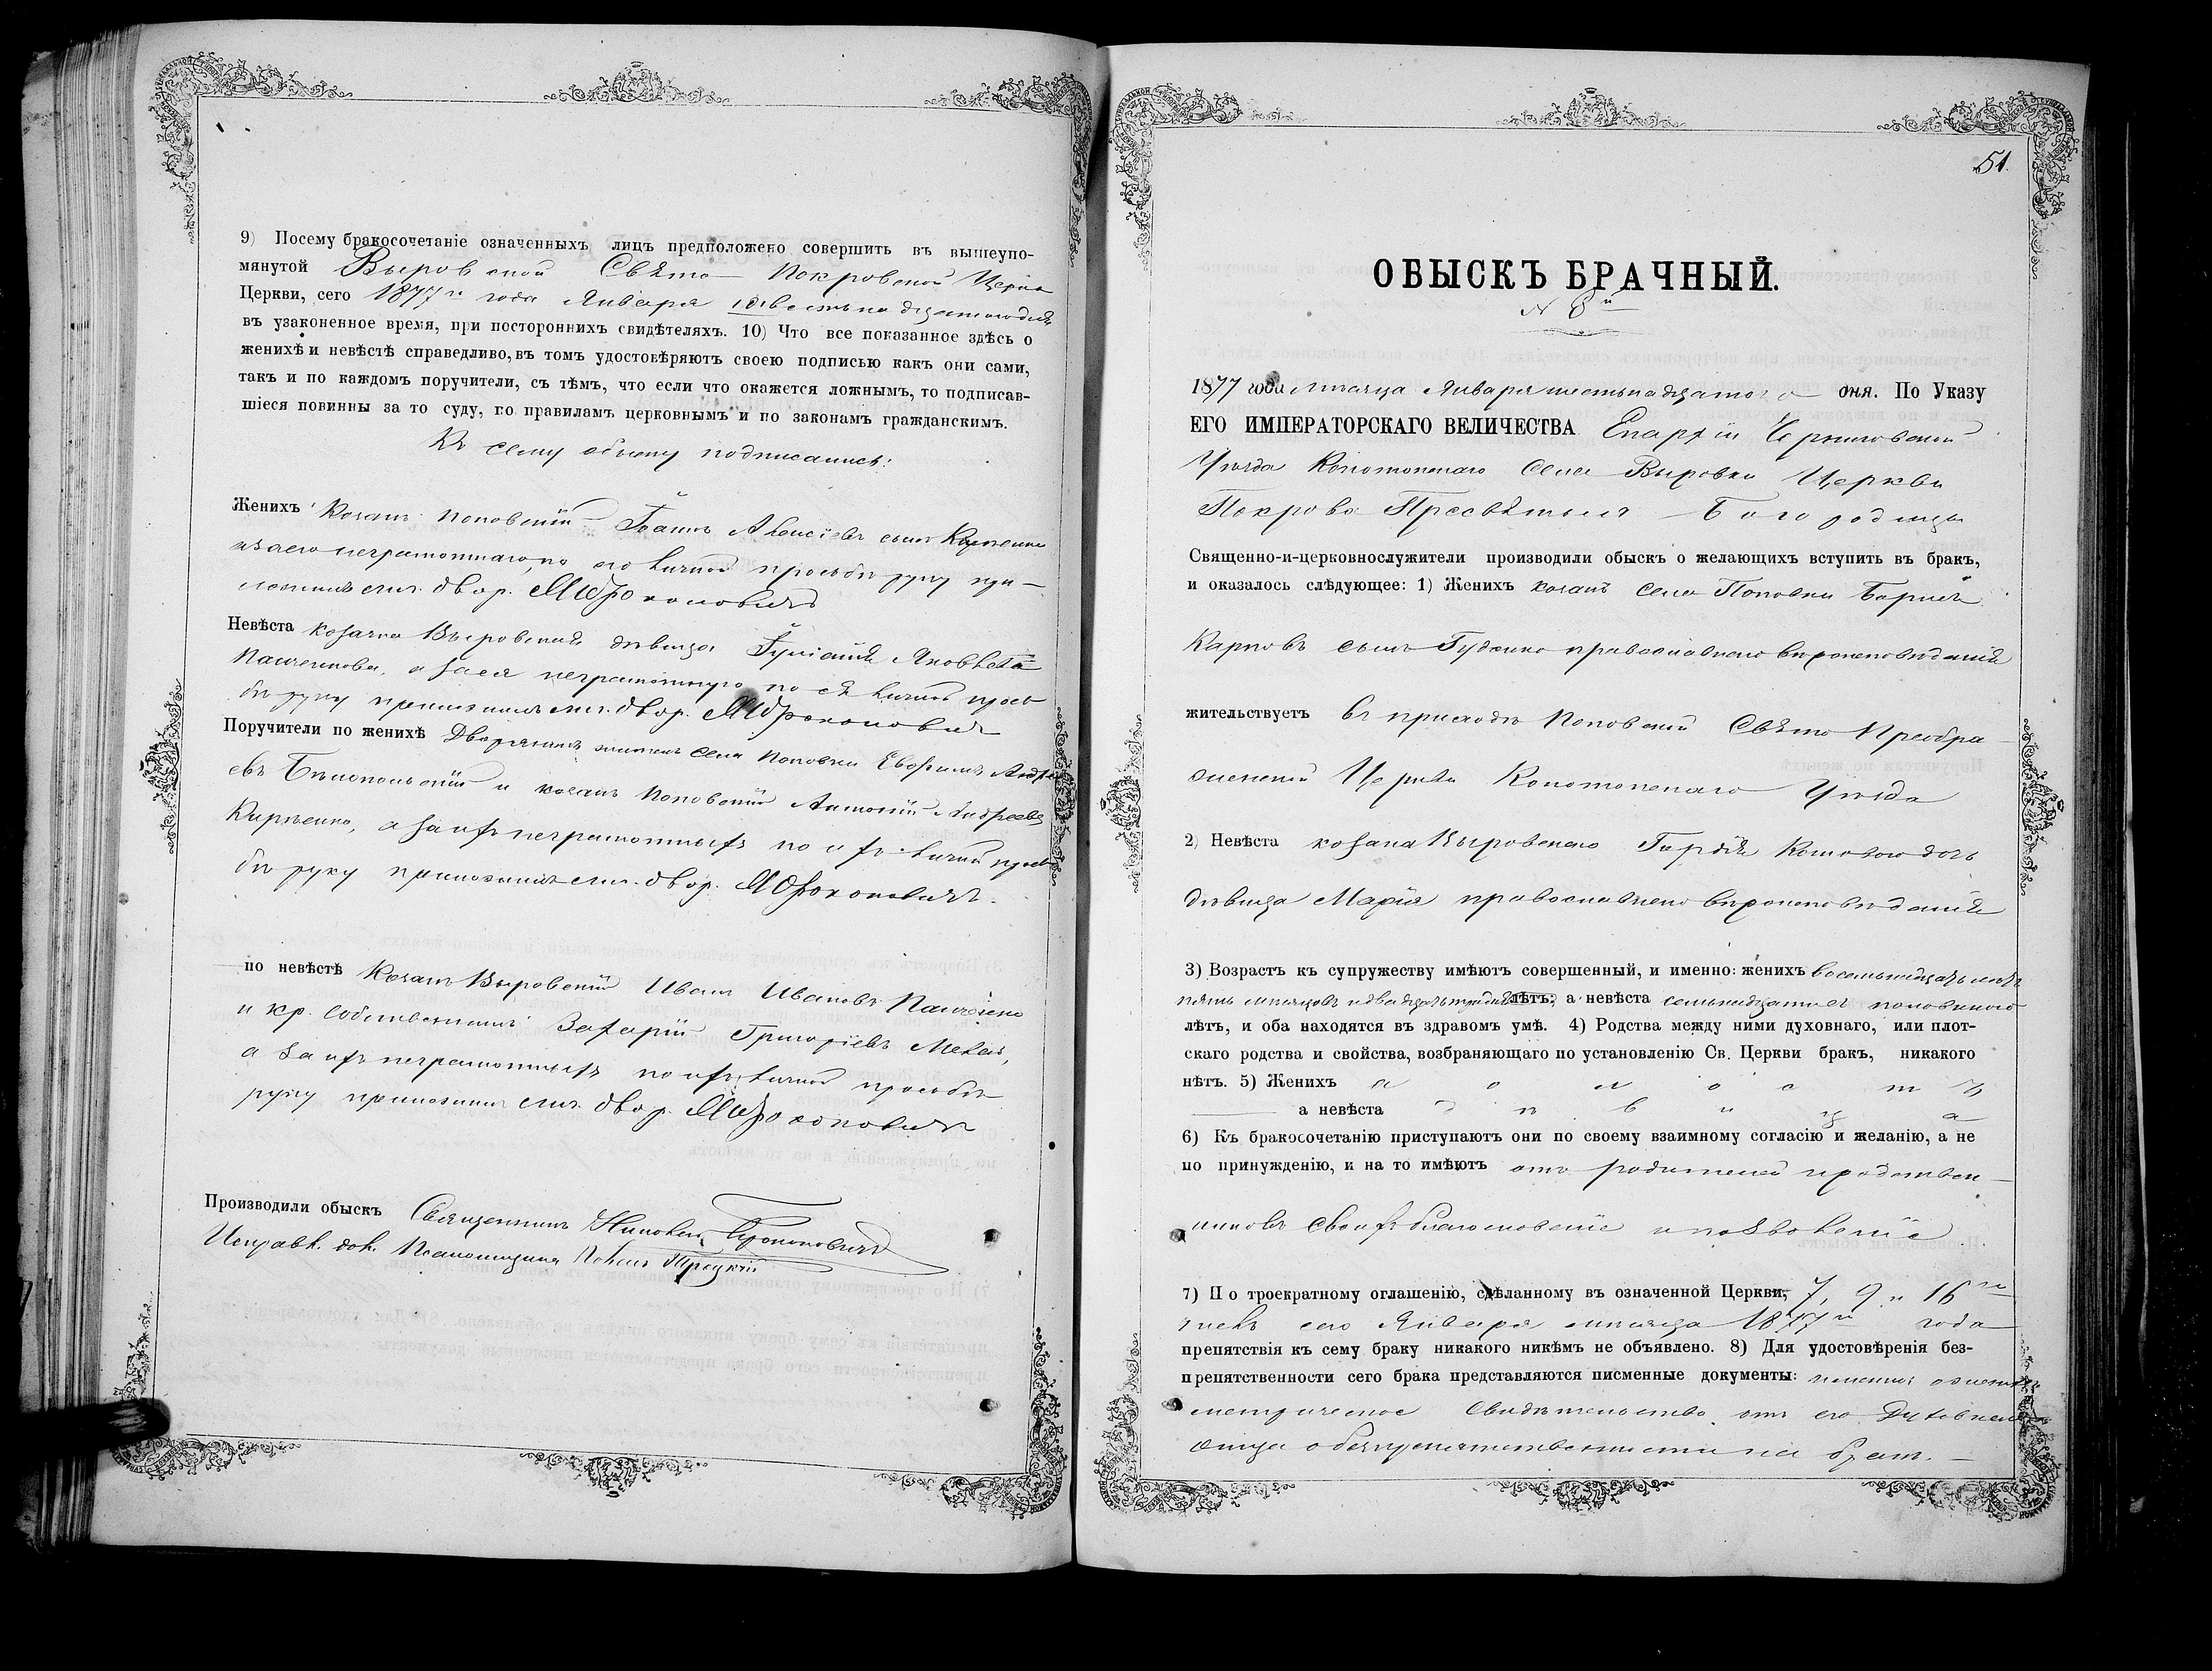 9) Посему бракосочетаніе означенныхъ лицъ предположено совершить въ вышеупо-
мянутой Выровской Свято Покровской Церкв
Церкви, сего 1877 го года Января
въ узаконенное время, при постороннихъ свидѣтеляхъ. 10) Что все показанное здѣсь о
женихѣ и невѣстѣ справедливо, въ томъ удостовѣряютъ своею подписью какъ они сами,
такъ и по каждомъ поручители, съ тѣмъ, что если что окажется ложнымъ, то подписав-
шіеся повинны за то суду, по правиламъ церковнымъ и по законамъ гражданскимъ.
Къ сему обыску подписались:
Женихъ Козакъ Поповскій Іоаннъ Алексіевъ сынъ
а за его неграмотнаго, по его личной прозьбѣ руку при-
ложилъ двор. Прокоповичъ
Невѣста Козачка Выровская дѣвица Іуліанія Яковлева
Панченкова, а за ея неграмотную по ея личной прозь
бѣ руку приложилъ двор. Прокоповичъ
Поручители по женихѣ Дворянинъ житель села Поповки Андре
евъ Бѣлопольскій и козакъ Поповскій Антоній Андреевъ
Кириенко, а за ихъ неграмотныхъ по ихъ личной прозь
бѣ руку приложилъ двор. Прокоповичъ.
по невѣстѣ Козакъ Выровскій Иванъ Ивановъ Панченко
и кр. собственникъ Захарій Григоріевъ
а за ихъ неграмотныхъ по ихъ личной прозьбѣ
руку приложилъ двор. Прокоповичъ
Производили обыскъ Священникъ Прокоповичъ
Исправл. дол. Псаломщика Троцкій
51.
ОБЫСКЪ БРАЧНЫЙ.
№ 8 й
1877 года мѣсяца Января шестьнадцатого дня. По Указу
ЕГО ИМПЕРАТОРСКАГО ВЕЛИЧЕСТВА Епархіи Черниговской
Уѣзда Конотопскаго Села Выровки Церкви
Покрова Пресвѣтыя Богородицы
Священно-и-церковнослужители производили обыскъ о желающихъ вступить въ бракъ,
и оказалось слѣдующее: 1) Женихъ козакъ села Поповки Борисъ
Карповъ сынъ Гуденко православнаго вѣроисповѣданія
жительствуетъ въ приходѣ Поповской Свято Преобра
женской Церкви Конотопскаго Уѣзда
2) Невѣста козака Выровскаго Гордія дочь
дѣвица Марія православнаго вѣроисповѣданія
3) Возрастъ къ супружеству имѣютъ совершенный, и именно: женихъ восемьнадцать лѣтъ
пять мѣсяцовъ и двадцать лѣтъ; а невѣста семьнадцати съ половиною
лѣтъ, и оба находятся въ здравомъ умѣ. 4) Родства между ними духовнаго, или плот-
скаго родства и свойства, возбраняющаго по установленію Св. Церкви бракъ, никакого
нѣтъ. 5) Женихъ холостъ
а невѣста дѣвица
6) Къ бракосочетанію приступаютъ они по своему взаимному согласію и желанію, а не
по принужденію, и на то имѣютъ отъ родителей и родствен-
никовъ своихъ благословеніе и позволеніе
7) По троекратному оглашенію, сдѣланному въ означенной Церкви, 7, 9 и 16 го
числъ сего Января мѣсяца 1877 го года
препятствія къ сему браку никакого никѣмъ не объявлено. 8) Для удостовѣренія без-
препятственности сего брака представляются писменные документы:
метрическое свидѣтельство отъ его Духовнаго
отца о безпрепятственности на бракъ.